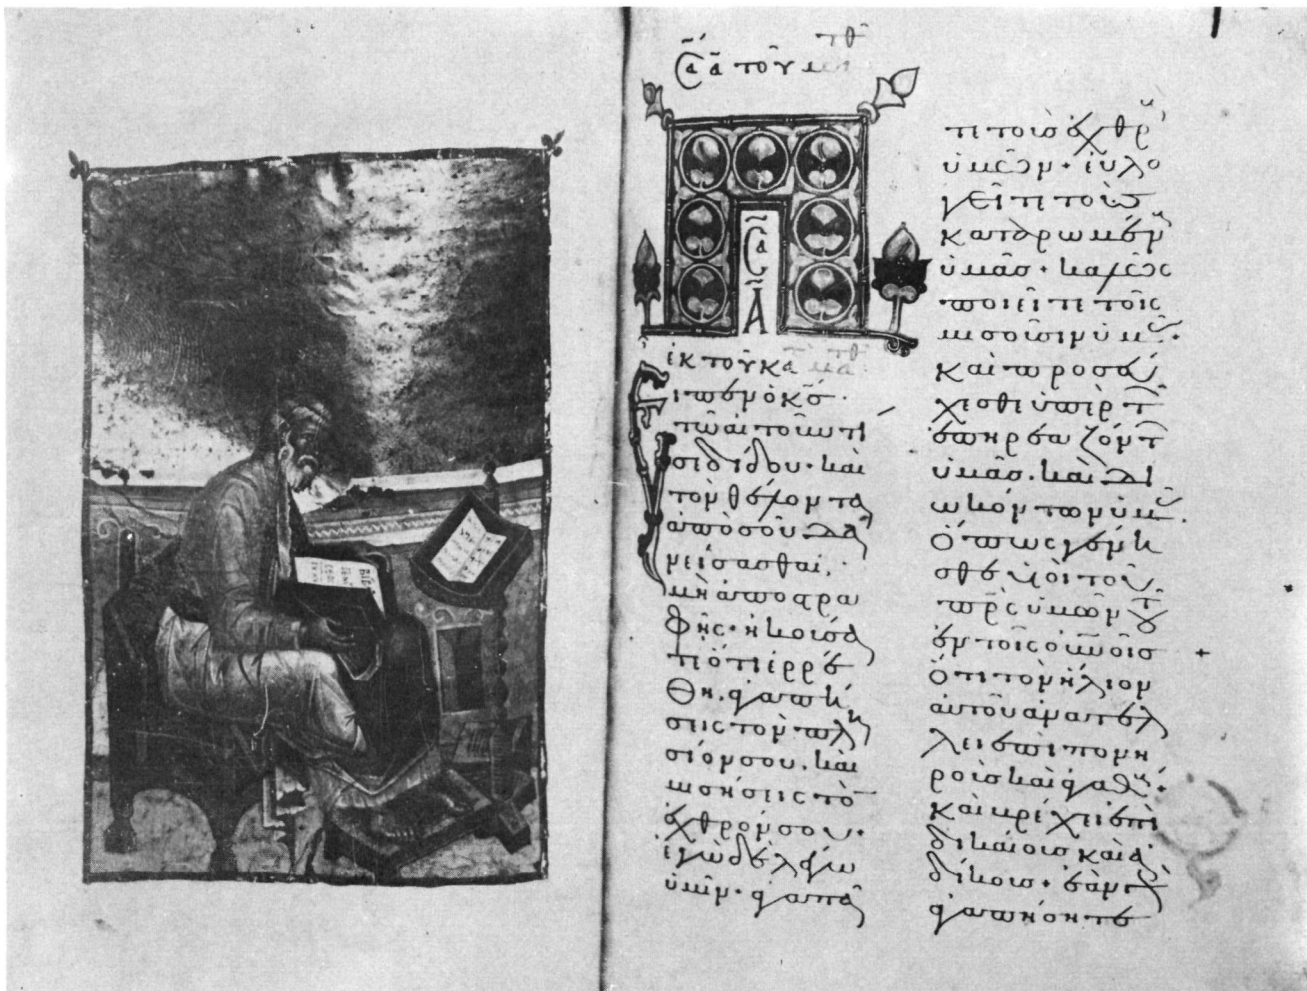 Σα α τοῦ ματθ
Σα
Α
ἐκ τοῦ κατὰ ματθ
Εἶπεν ὁ κς·
τῶ αἰτοῦντι
σε δίδου· καὶ
τὸν θέλοντα
ἀπὸ σοῦ δα
νείσασθαι,
μὴ ἀποστρα
φῆς· ἠκούσα
τε ὅτι ἐρρέ
θη, ἀγαπή
σεις τὸν πλη
σίον σου, καὶ
μισήσεις τὸ
ἐχθρόν σου·
ἐγὼ δὲ λέγω
ὑμῖν· ἀγαπᾶ
τε τοὺς ἐχθρ
ὑμῶν· εὐλο
γεῖτε τοὺς
καταρωμέν
ὑμᾶς· καλῶς
ποιεῖτε τοῖς
μισοῦσιν ὑμᾶς·
καὶ προσεύ
χεσθε ὑπὲρ τ
ἐπηρεαζόντ
ὑμᾶς, καὶ δι
ωκόντων ὑμᾶς.
Ὅπως γένη
σθε υἱοὶ τοῦ
πρς ὑμῶν τοῦ
ἐν τοῖς οὐνοῖς
Ὅτι τὸν ἥλιον
αὐτοῦ ἀνατέλ
λει ἐπὶ πονη
ροὺς καὶ ἀγαθούς·
καὶ βρέχει ἐπὶ
δικαίους καὶ ἀ
δίκους· ἐὰν γὰρ
ἀγαπήσητε